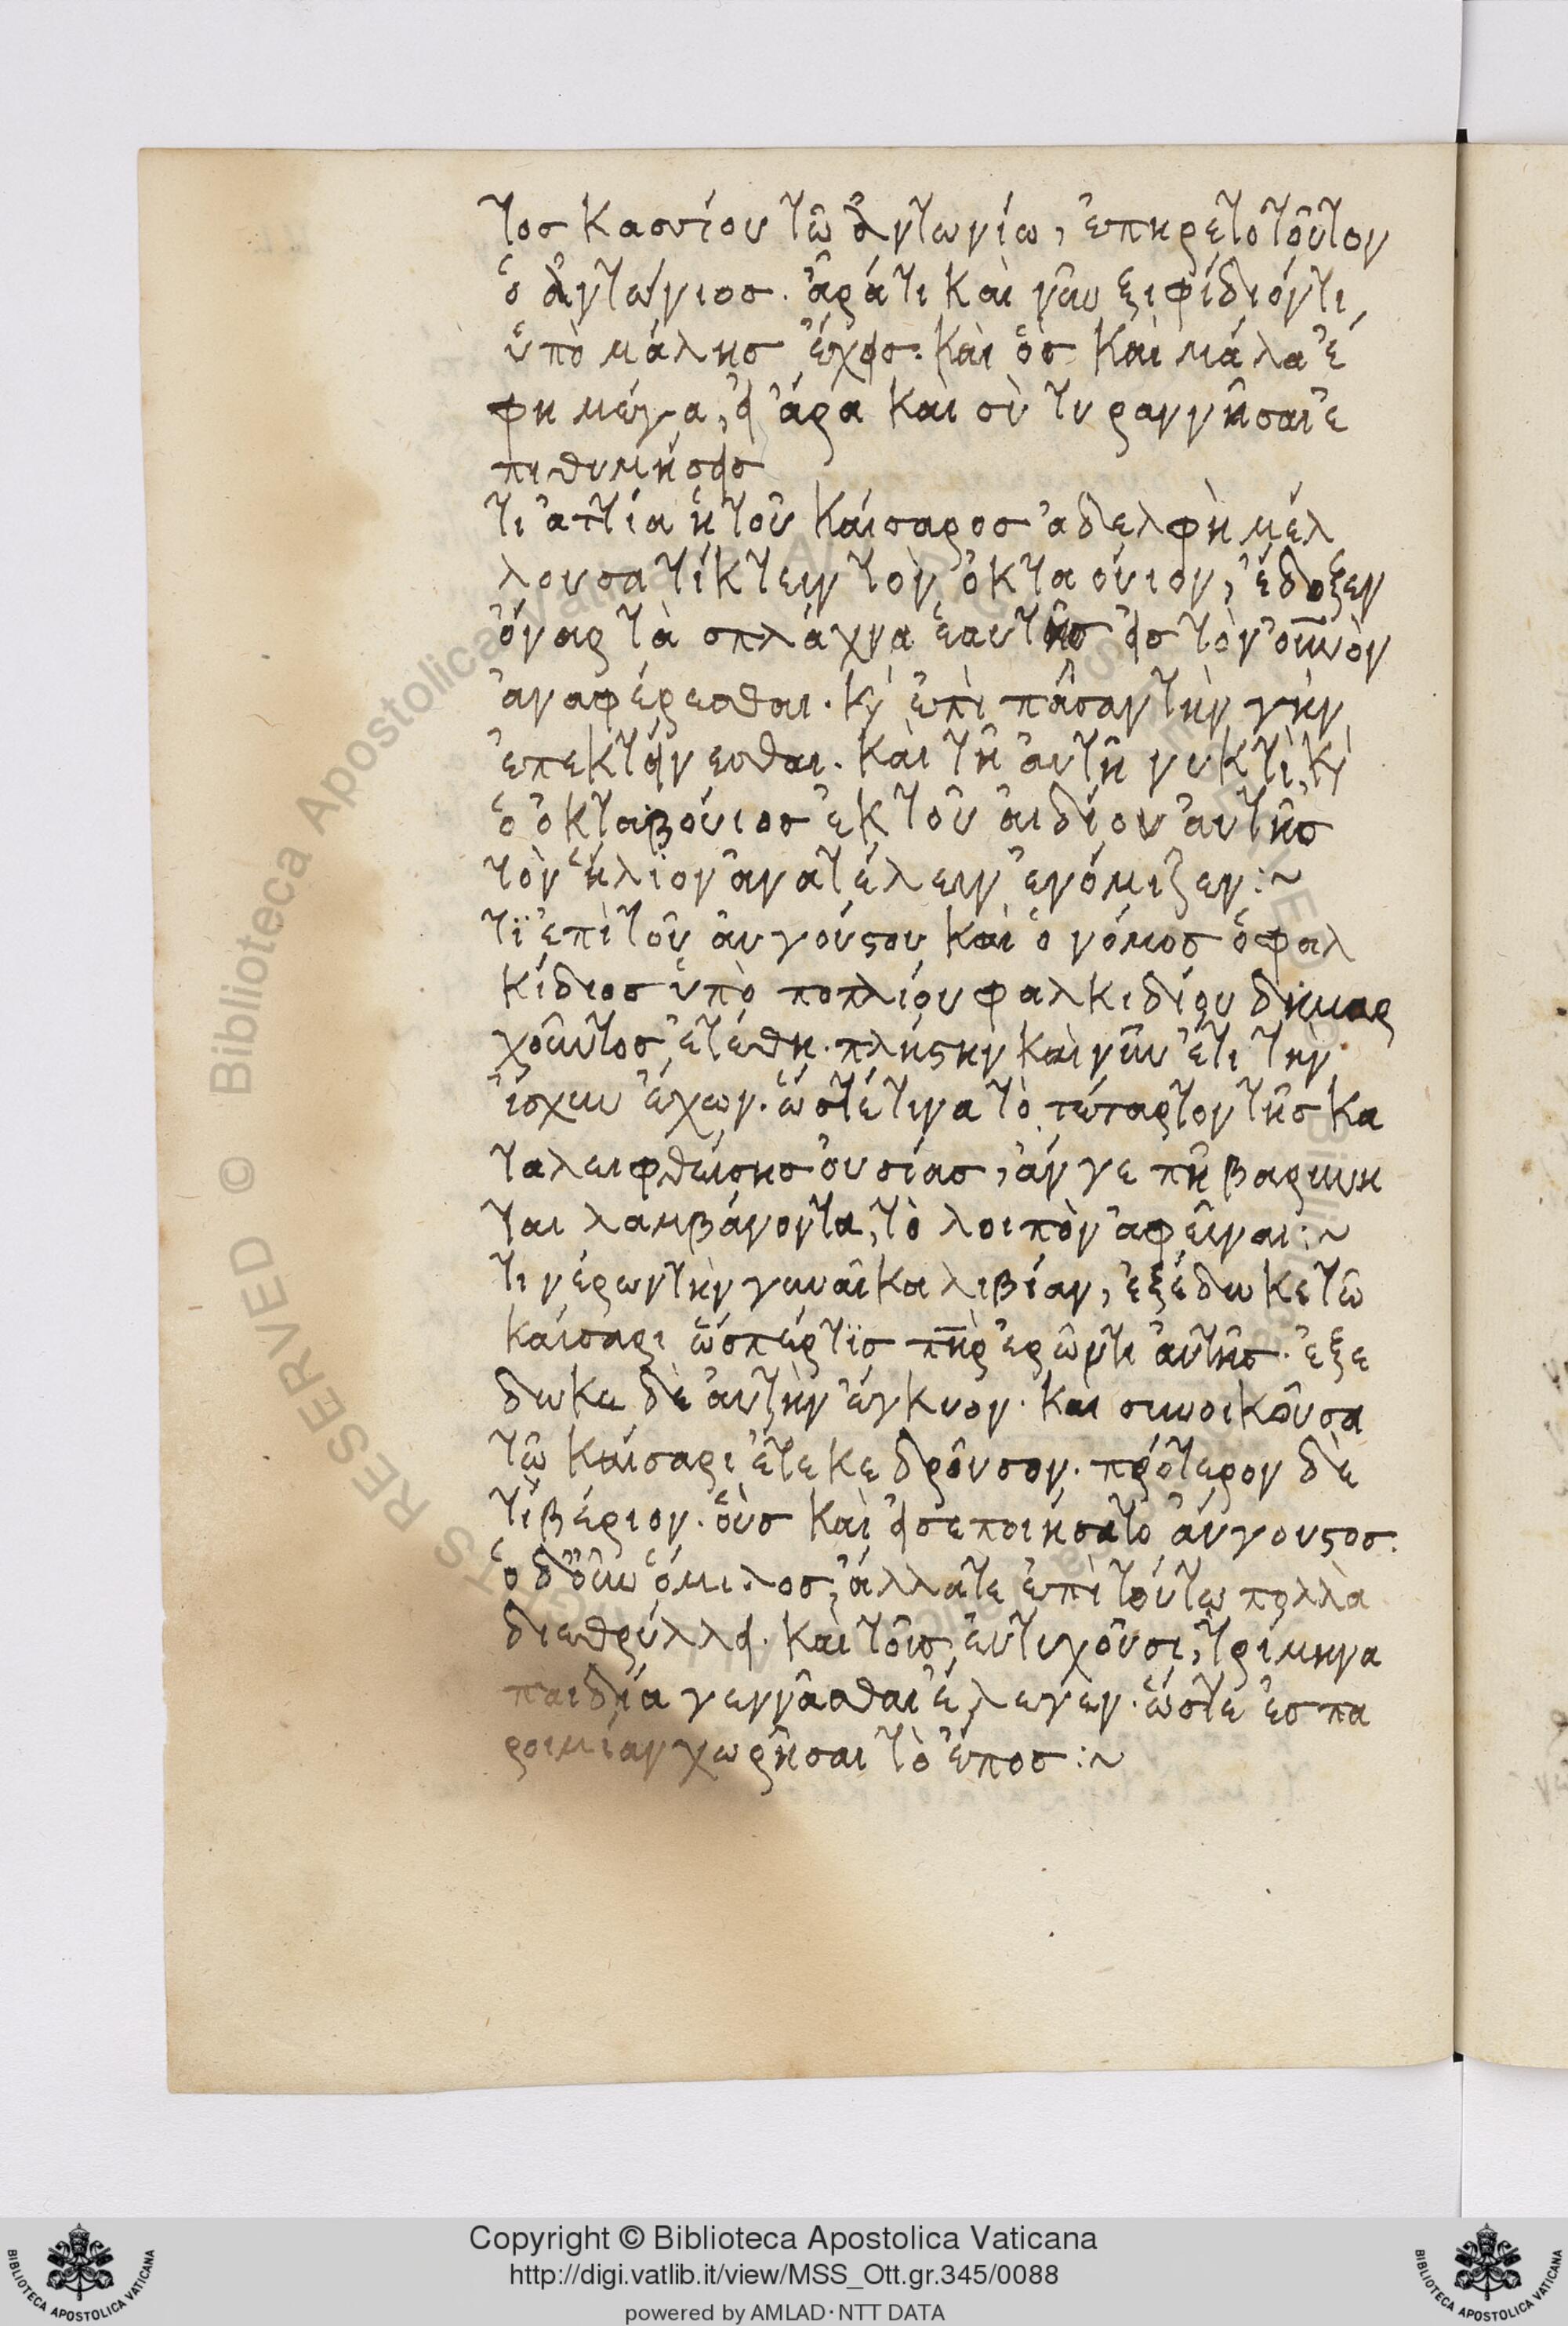 τος κασσίου τῶ ἀντωνίω, ἐπηρετο τοῦτον
ὁ ἀντώνιος. ἆρά τι καὶ νῦν ξιφίδιόν τι
ὑπὸ μάλης ἔχεις. καὶ ὃς καὶ μάλα ἔ
φη μέγα, εἰ ἄρα καὶ σὺ τυραννῆσαι ἐ
πιθυμήσεις
τι ἀττία ἡ τοῦ καίσαρος ἀδελφὴ μέλ
λουσα τίκτειν τὸν ὀκταούιον, ἔδοξεν
ὄναρ τὰ σπλάχνα ἑαυτῆς εἰς τὸν οὐνὸν
ἀναφέρεσθαι. κὶ ἐπὶ πᾶσαν τὴν γῆν
ἐπεκτείνεσθαι. καὶ τῆ αὐτῆ νυκτὶ, κὶ
ὁ ὀκταβούιος ἐκ τοῦ αἰδίου αὐτῆς
τὸν ἥλιον ἀνατέλειν ἐνόμιζεν :~
τι ἐπὶ τοῦ αὐγούστου καὶ ὁ νόμος ὁ φαλ
κίδιος ὑπὸ ποπλίου φαλκιδίου δημαρ
χοῦντος ἐτέθη. πλήστην καὶ νῦν ἔτι τὴν
ἰσχὺν ἔχων. ὥστέ τινα τὸ τέταρτον τῆς κα
ταλειφθείσης οὐσίας, ἄν γε πῆ βαρύνη
ται λαμβάνοντα, τὸ λοιπὸν ἀφεῖναι :~
τι νέρων τὴν γυναῖκα λιβίαν, ἐξέδωκε τῶ
καίσαρι ὥσπέρ τις πὴρ ἐρῶντι αὐτῆς. ἐξε
δωκε δὲ αὐτὴν ἔγκυον. και συνοικοῦσα
τῶ καίσαρι ἔτεκε δροῦσον. πρότερον δὲ
τιβέριον. οὓς καὶ εἰσεποιήσατο αὔγουστος.
ὁ δ' οὖν ὅμιλος, ἄλλα τε ἐπὶ τούτω πολλὰ
διεθρύλλει. καὶ τοῖς εὐτυχοῦσι, τρίμηνα
παιδία γεννᾶσθαι ἔλεγεν. ὥστε ἐς πα
ροιμίαν χωρῆσαι τὸ ἔπος :~
Copyright © Biblioteca Apostolica Vaticana
http://digi.vatlib.it/view/MSS_Ott.gr.345/0088
powered by AMLAD·NTT DATA